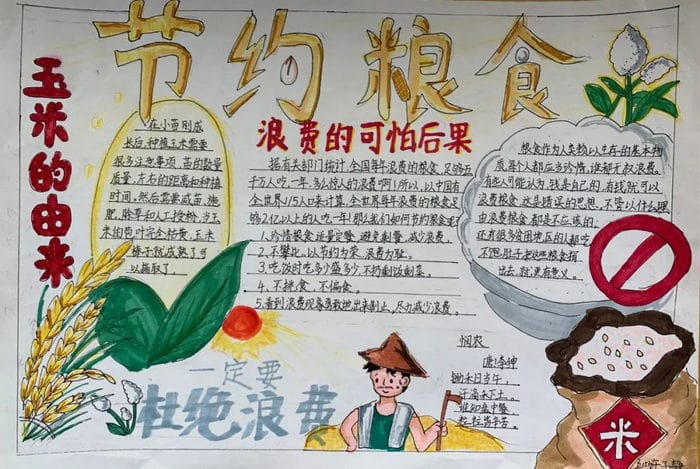 节约粮食
玉米的由来
在小苗刚成
长后,种植玉米需要
很多注意事项,苗的数量
质量,左右的距离和种植
时间,然后需要减苗,施
肥,除草和人工授粉,当玉
米的苞叶完全枯黄,玉米
棒子就成熟了可
以摘取了。
浪费的可怕后果
据有关部门统计,全国每年浪费的粮食,足够五
千万人吃一年,多么惊人的浪费啊!所以,以中国有
全世界1/5人口来计算,全世界每年浪费的粮食足
够2亿以上的人吃一年!那么我们如何节约粮食呢?
1.珍惜粮食,适量定餐,避免剩餐,减少浪费。
2、不攀比,以节约为荣,浪费为耻。
3、吃饭时吃多少盛多少,不扔剩饭剩菜。
4、不挑食,不偏食。
5.看到浪费现象勇敢地出来制止,尽力减少浪费。
粮食作为人类赖以生存的基本物
质,每个人都应当珍惜,谁都无权浪费。
有些人可能认为,钱是自己的,有钱就可以
浪费粮食,这是错误的思想,不管以什么理
由浪费粮食都是不应该的,
还有很多贫困地区的人都吃
不饱肚子,把这些粮食捐
出去,就更有意义。
悯农
唐:李绅
锄禾日当午,
汗滴禾下土。
谁知盘中餐
粒粒皆辛苦。
一定要
杜绝浪费
米